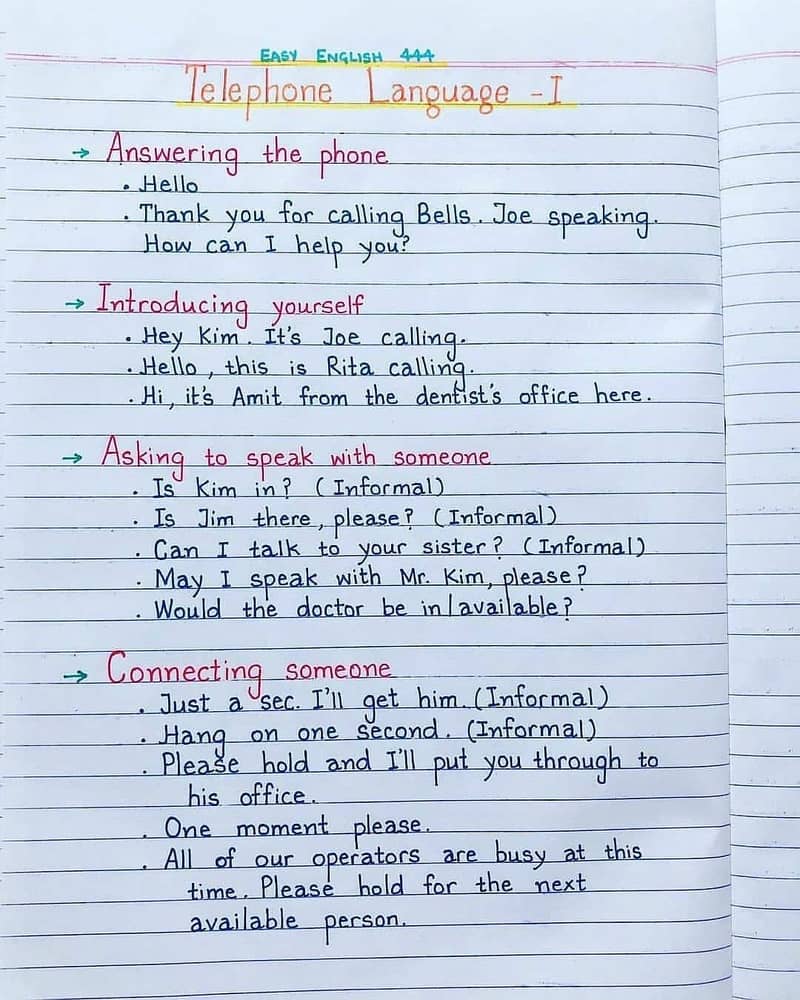 EASY ENGLISH 444
Telephone Language - I
→ Answering the phone
• Hello
• Thank you for calling Bells. Joe speaking.
How can I help you?
→ Introducing yourself
• Hey Kim. It's Joe calling.
• Hello, this is Rita calling.
• Hi, it's Amit from the dentist's office here.
→ Asking to speak with someone
• Is Kim in? (Informal)
• Is Jim there, please? (Informal)
• Can I talk to your sister? (Informal)
• May I speak with Mr. Kim, please?
• Would the doctor be in/available?
→ Connecting someone
• Just a sec. I'll get him. (Informal)
• Hang on one second. (Informal)
• Please hold and I'll put you through to
his office.
• One moment please.
• All of our operators are busy at this
time. Please hold for the next
available person.